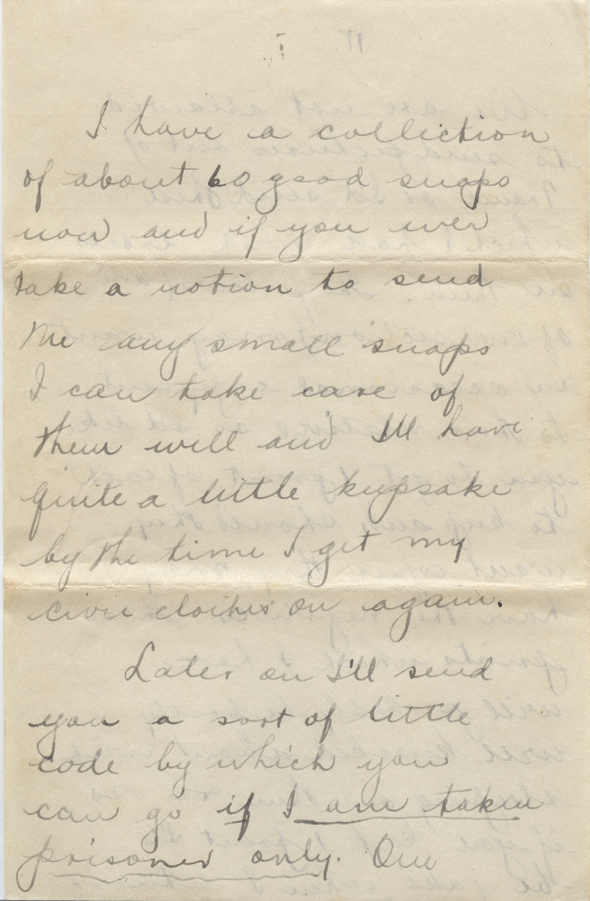 I have a collection
of about 60 good snaps
now and if you ever
take a notion to send
me any small snaps
I can take care of
them well and I'll have
quite a little keepsake
by the time I get my
civie clothes on again.
Later on I'll send
you a sort of little
code by which you
can go if I am taken
prisoner only. Our